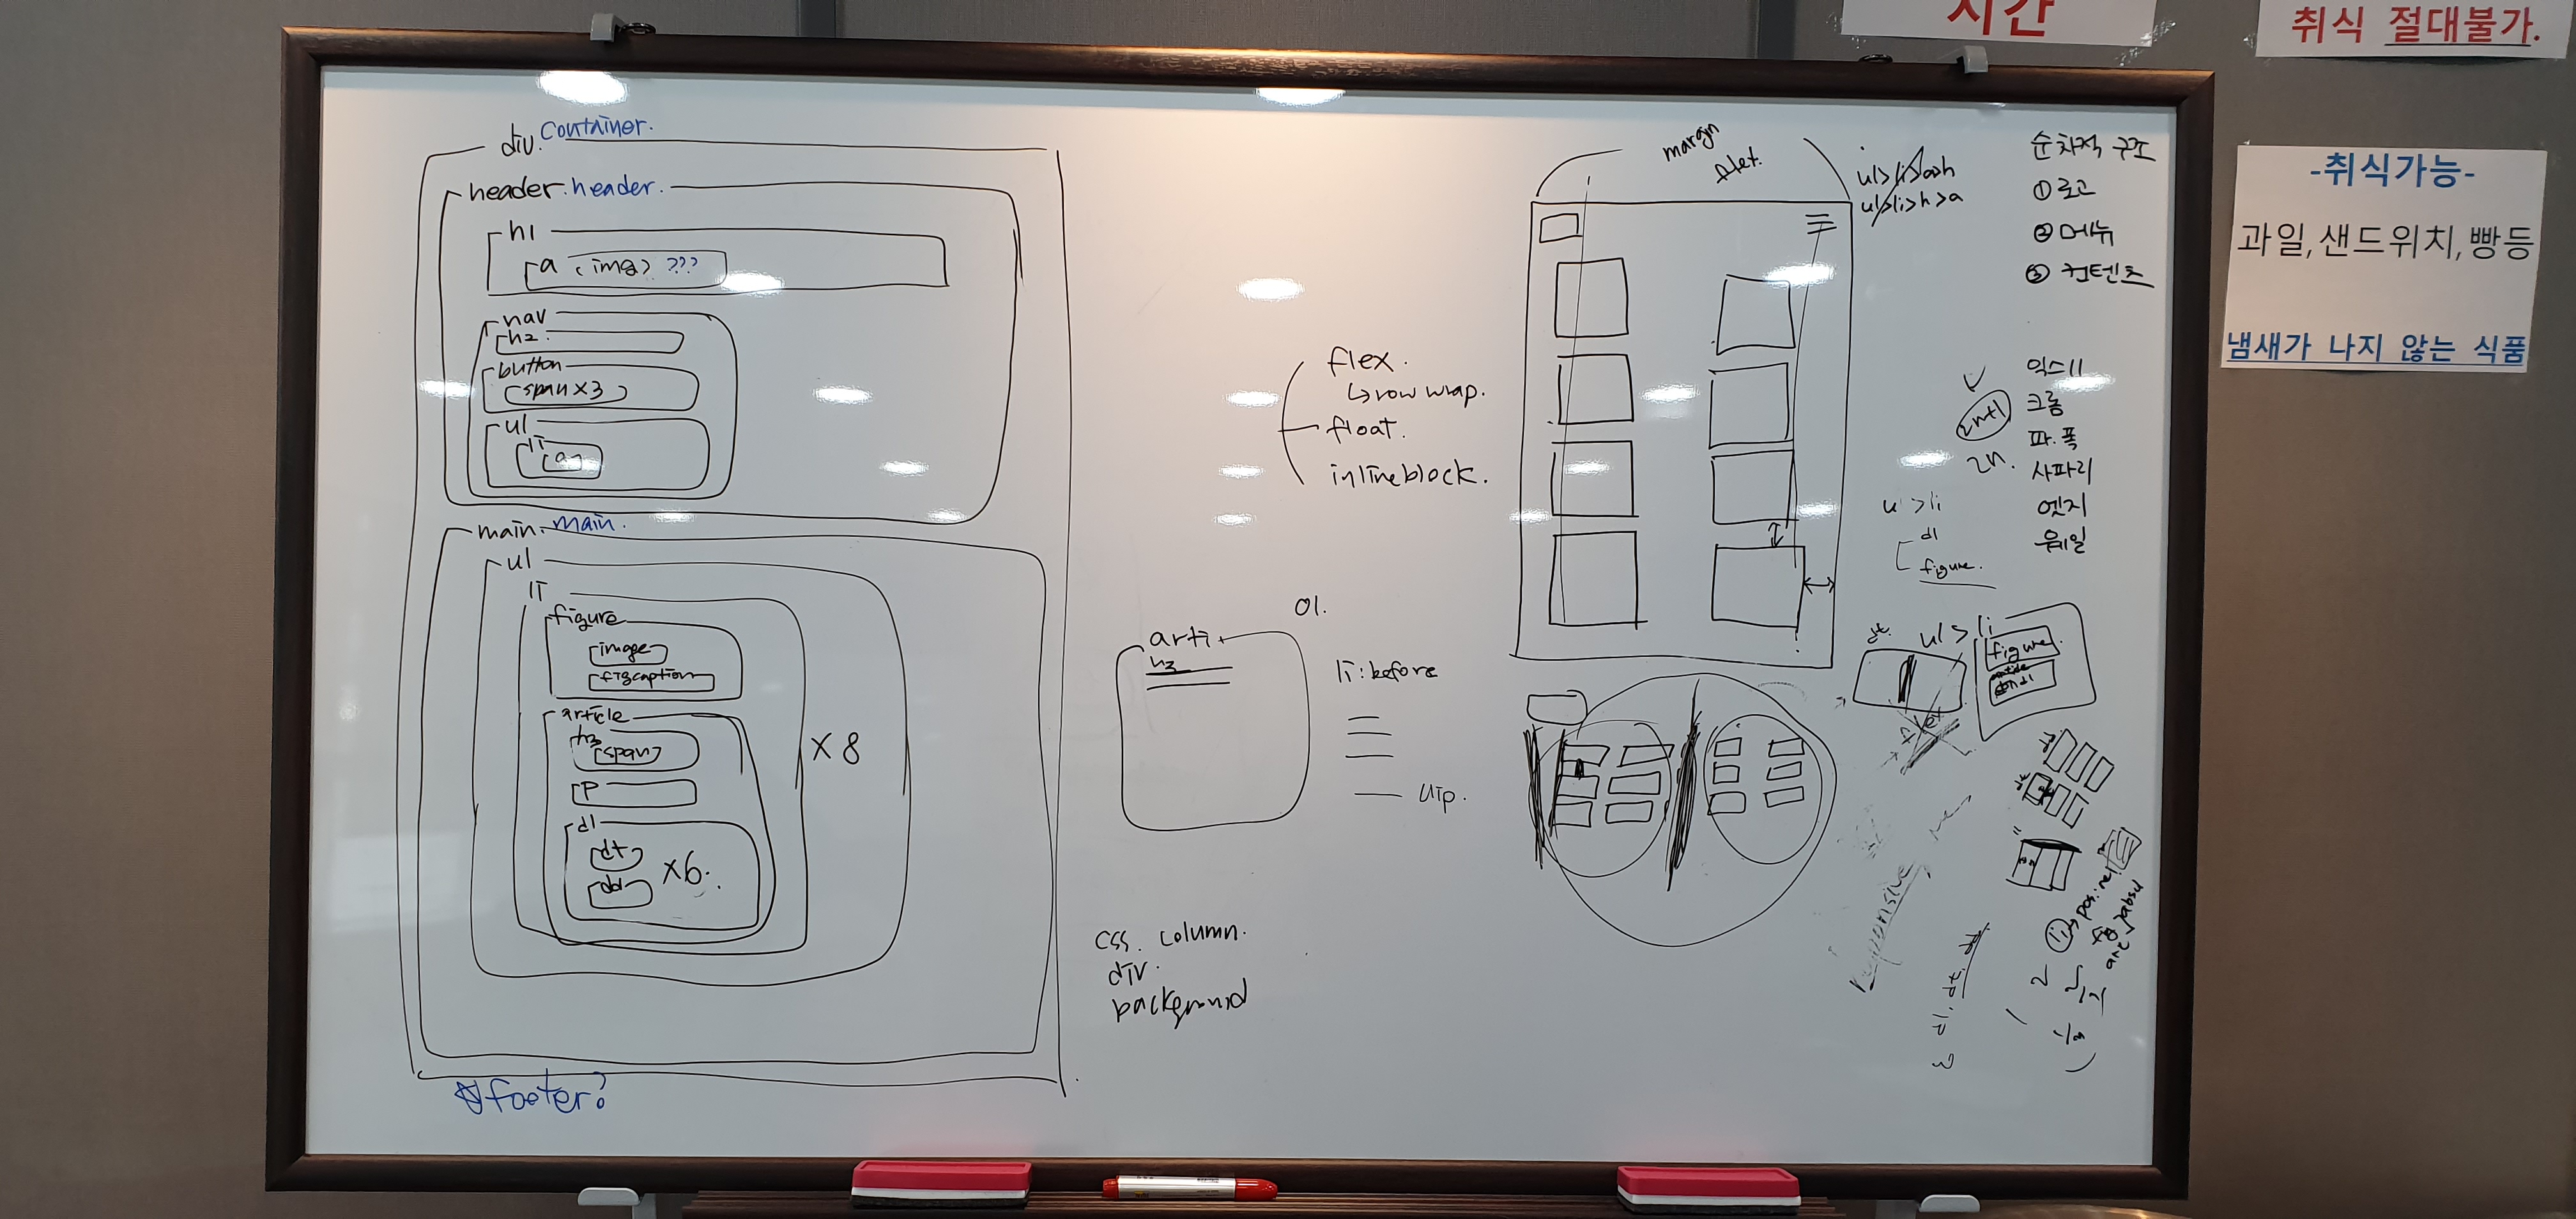 시간
취식 절대불가.
-취식가능-
과일,샌드위치,빵등
냄새가 나지 않는 식품
div. container.
header.header.
h1
a <img> ???
nav
h2.
button
span x3
ul
li
a
main. main.
ul
li
figure
image
figcaption
article
h3
span
p
dl
dt
dd
x6.
x 8
footer?
flex.
↳row wrap.
float.
inline block.
01.
arti.
h3
li:before
css. column.
div.
background
margin
ul>li>a>h
ul>li>h>a
순차적 구조
① 로고
② 메뉴
③ 컨텐츠
익스11
크롬
파.폭
사파리
엣지
웨일
2n+1
2n.
ul >li
dl
figure.
ul > li
figure
Responsive
li